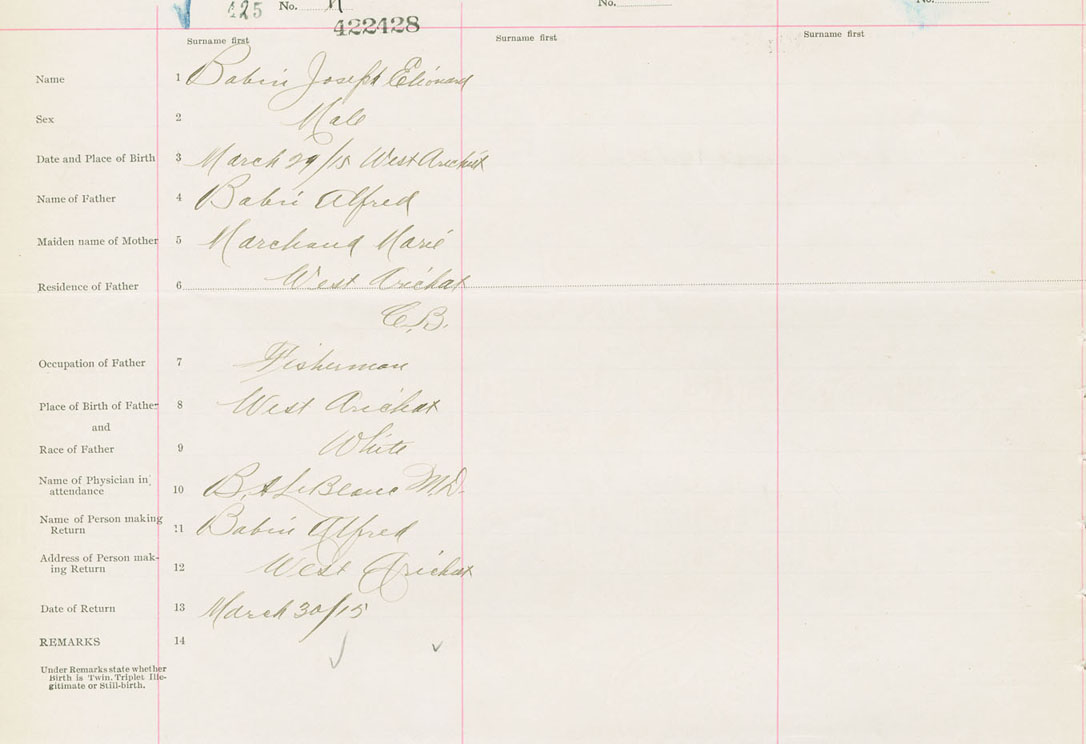 425 No. No. No.
422428
Surname first Surname first Surname first
Name 1 Babin Joseph
Sex 2 Male
Date and Place of Birth 3 March 29/15 West Arichat
Name of Father 4 Babin Alfred
Maiden name of Mother 5 Marchand Marie
Residence of Father 6 West Arichat
C.B.
Occupation of Father 7 Fisherman
Place of Birth of Father 8 West Arichat
and
Race of Father 9 White
Name of Physician in
attendance 10 B. A LeBlanc M.D.
Name of Person making
Return 11 Babin Alfred
Address of Person mak-
ing Return 12 West Arichat
Date of Return 13 March 30/15
REMARKS 14
Under Remarks state whether
Birth is Twin, Triplet Ille-
gitimate or Still-birth.